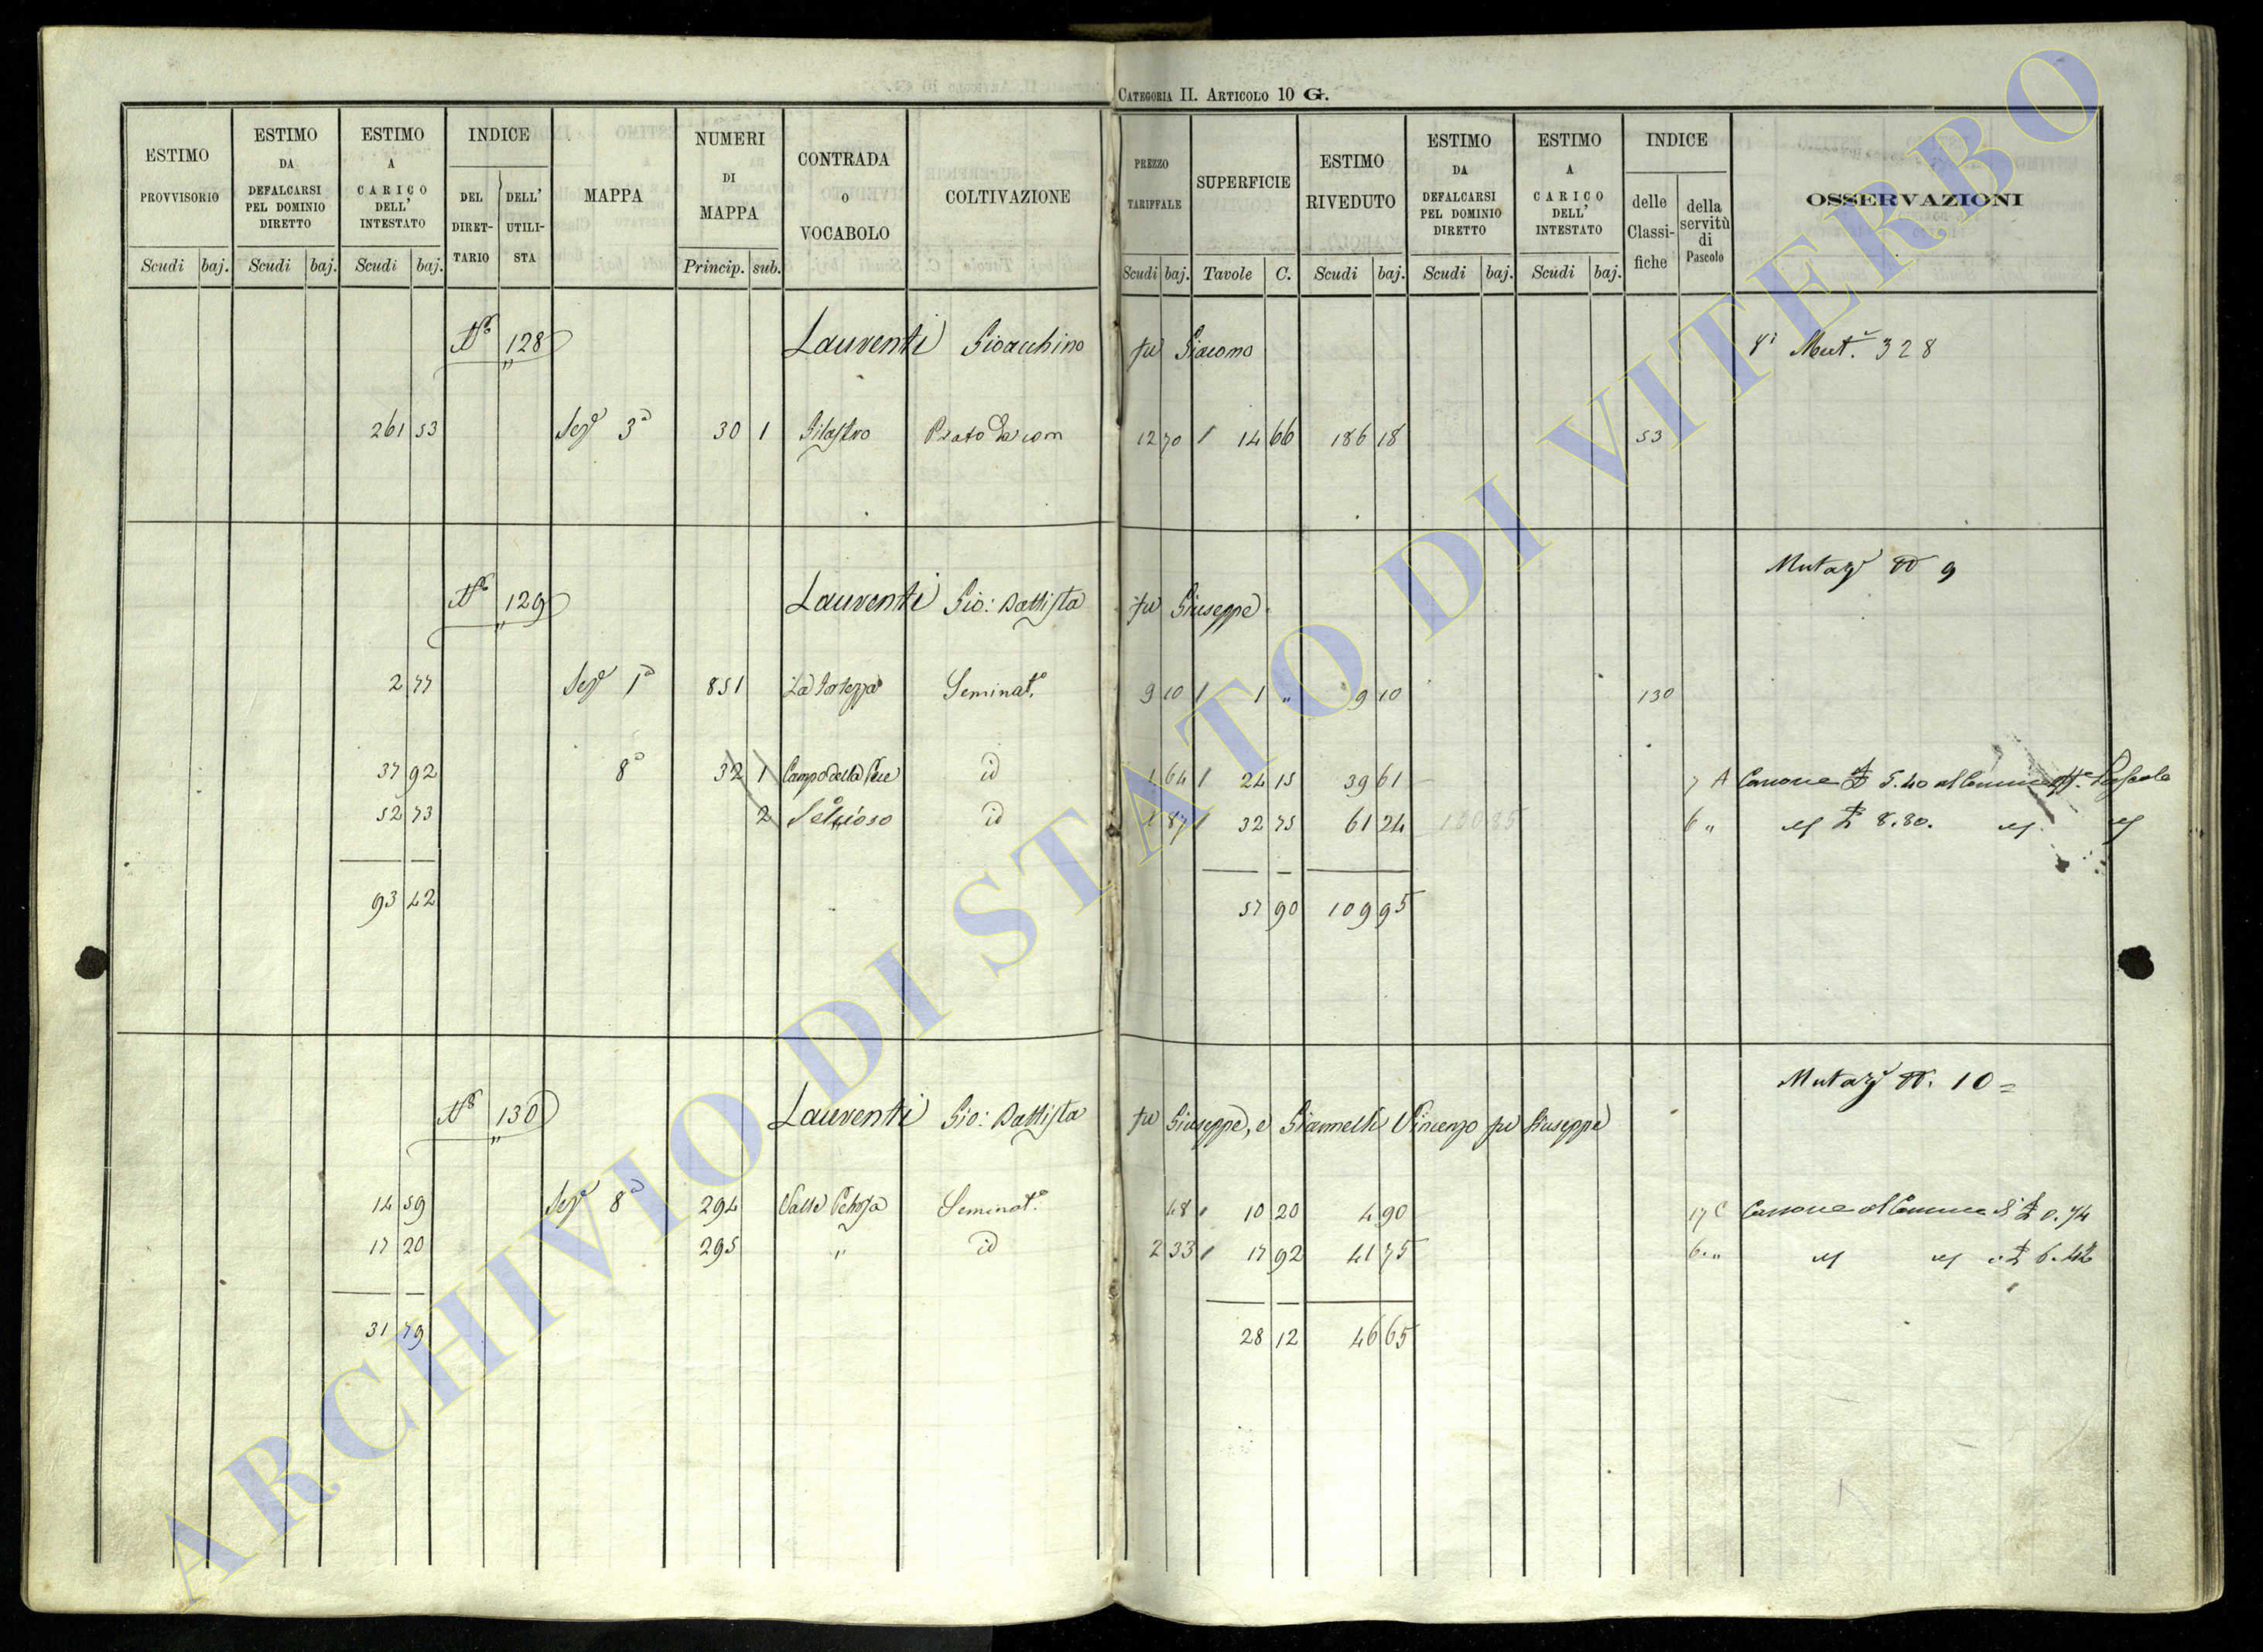 CATEGORIA II. ARTICOLO 10 G.
ESTIMO PROVVISORIO Scudi baj.
ESTIMO DA DEFALCARSI PEL DOMINIO DIRETTO Scudi baj.
ESTIMO A CARICO DELL' INTESTATO Scudi baj.
INDICE DEL DIRET-TARIO DELL' UTILI-STA
MAPPA
NUMERI DI MAPPA Princip. sub.
CONTRADA O VOCABOLO
COLTIVAZIONE
PREZZO TARIFFALE Scudi baj.
SUPERFICIE Tavole C.
ESTIMO RIVEDUTO Scudi baj.
ESTIMO DA DEFALCARSI PEL DOMINIO DIRETTO Scudi baj.
ESTIMO A CARICO DELL' INTESTATO Scudi baj.
INDICE delle Classi-fiche della servitù di Pascolo
OSSERVAZIONI
No 128 Laurenti Gioacchino fu Giacomo Mut. 328
261 53 Sez 3a 30 1 Pilastro Prato 12 70 14 66 186 18 53
Mutaz N 9
No 129 Laurenti Gio: Battista fu Giuseppe
2 77 Sez 1a 851 La Fortezza Seminato 9 10 1 " 9 10 130
37 92 8a 32 1 Campo della id 1 64 24 15 39 61 7 A Canone 5.40 al Comune Pascolo
52 73 2 id 1 87 32 75 61 24 130 85 6 " 8.80.
93 42 57 90 109 95
Mutaz N. 10 =
No 130 Laurenti Gio: Battista fu Giuseppe, e Giannelli Vincenzo fu Giuseppe
14 59 Sez 8a 294 Valle Seminato 48 10 20 4 90 17 C Canone al Comune di 0.74
17 20 295 " id 2 33 17 92 41 75 6 "
31 79 28 12 46 65
ARCHIVIO DI STATO DI VITERBO